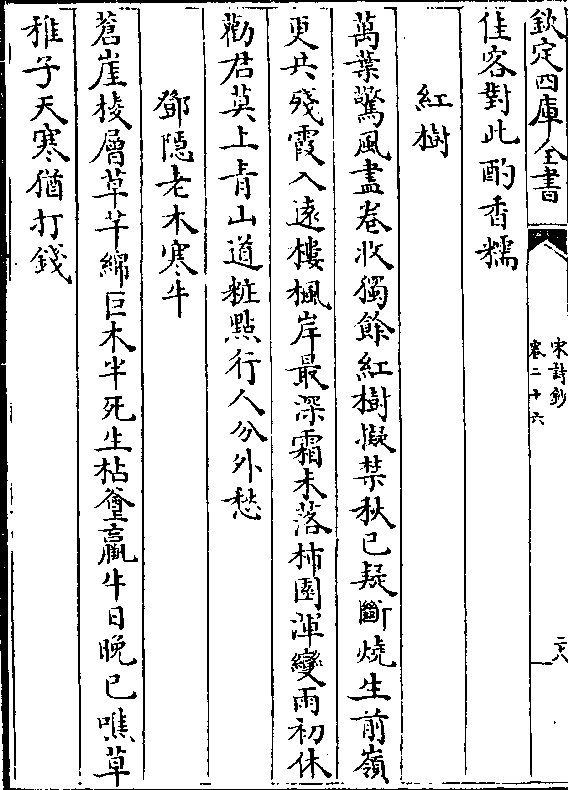 欽定四庫全書
宋詩鈔
卷二十六
佳客對此酌香糯
紅樹
萬葉驚風盡卷收獨餘紅樹擬禁秋已疑斷燒生前嶺
更共殘霞入遠樓楓岸最深霜未落柿園渾變雨初休
勸君莫上青山道粧點行人分外愁
鄧隱老木寒牛
蒼崖棱層草芊綿巨木半死生枯羸牛日晚已噍草
稚子天寒猶打錢